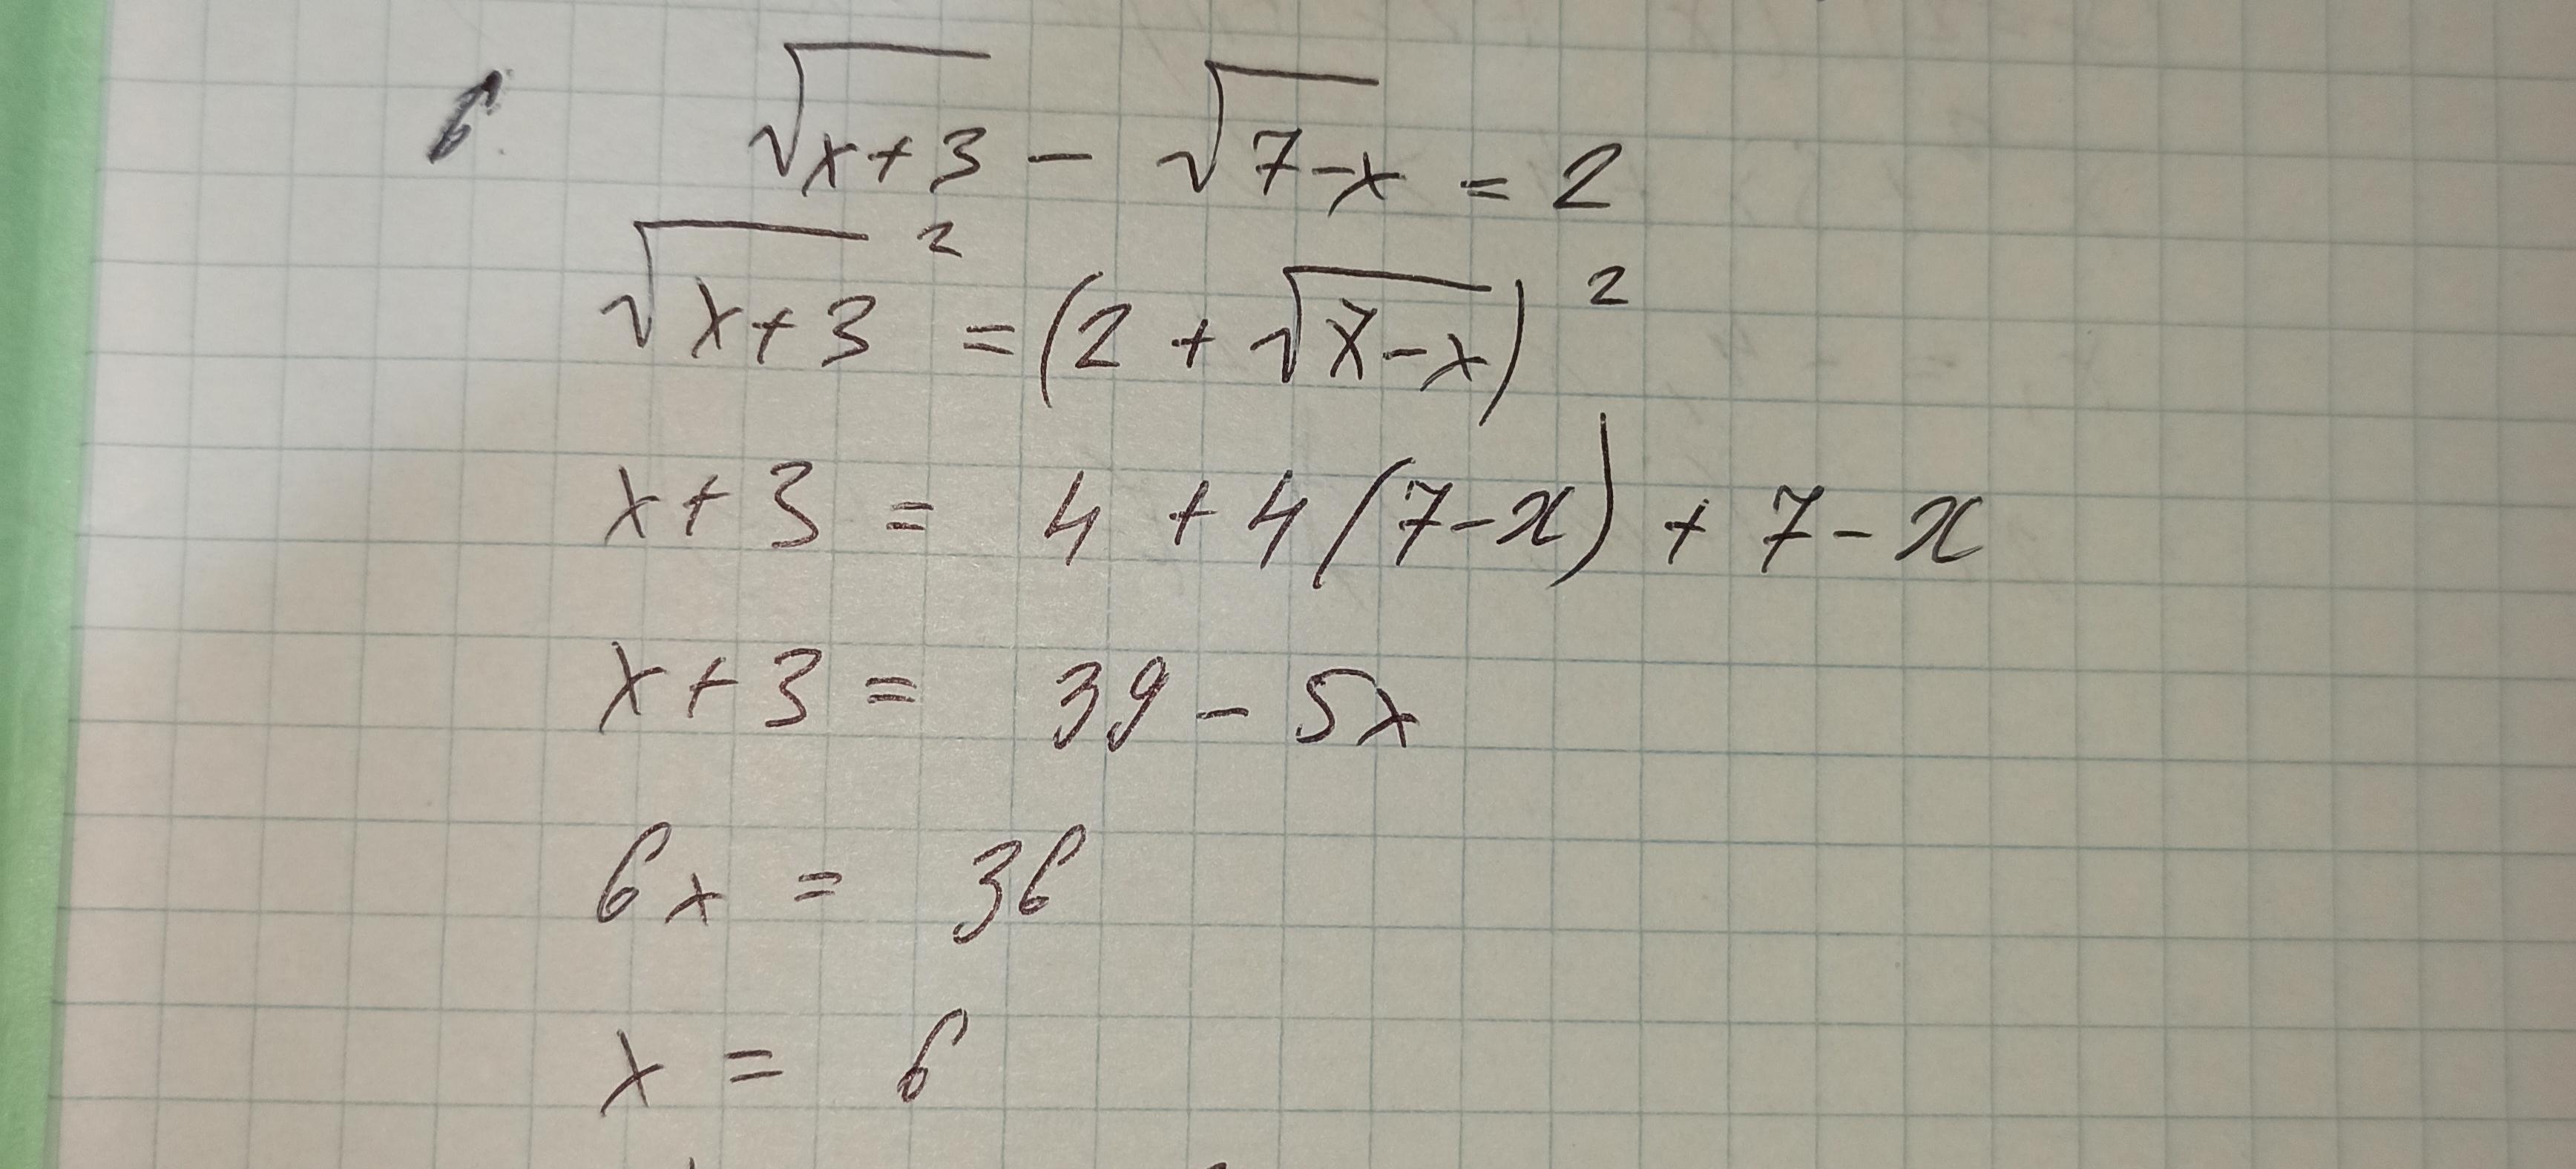 6. √(x+3) - √(7-x) = 2
√(x+3)² = (2 + √(7-x))²
x+3 = 4 + 4(7-x) + 7-x
x+3 = 39 - 5x
6x = 36
x = 6